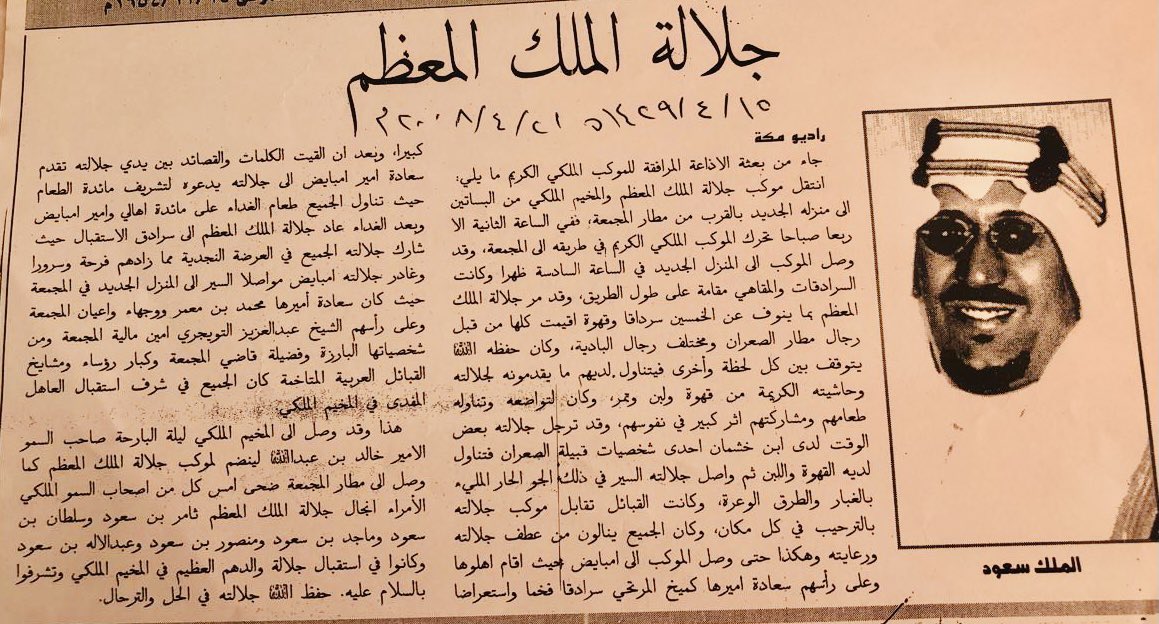 جلالة الملك المعظم
١٤٢٩/٤/١٥ه ٢٠٠٨/٤/٢١م
راديو مكة
جاء من بعثة الاذاعة المرافقة للموكب الملكي الكريم ما يلي:
انتقل موكب جلالة الملك المعظم والمخيم الملكي من البساتين
الى منزله الجديد بالقرب من مطار المجمعة، ففي الساعة الثانية الا
ربعا صباحا تحرك الموكب الملكي الكريم في طريقه الى المجمعة، وقد
وصل الموكب الى المنزل الجديد في الساعة السادسة ظهرا وكانت
السرادقات والمقاهي مقامة على طول الطريق، وقد مر جلالة الملك
المعظم بما ينوف عن الخمسين سردقا وقهوة اقيمت كلها من قبل
رجال مطار الصعران ومختلف رجال البادية، وكان حفظه الله
يتوقف بين كل لحظة وأخرى فيتناول لديهم ما يقدمونه لجلالته
وحاشيته الكريمة من قهوة ولبن وتمر، وكان لتواضعه وتناوله
طعامهم ومشاركتهم اثر كبير في نفوسهم، وقد ترجل جلالته بعض
الوقت لدى ابن خشمان احدى شخصيات قبيلة الصعران فتناول
لديه القهوة واللبن ثم واصل جلالته السير في ذلك الجو الحار المليء
بالغبار والطرق الوعرة، وكانت القبائل تقابل موكب جلالته
بالترحيب في كل مكان، وكان الجميع ينالون من عطف جلالته
ورعايته وهكذا حتى وصل الموكب الى امبايض حيث اقام اهلوها
وعلى رأسهم سعادة اميرها كميخ المرتخي سرادقا فخما واستعراضا
كبيرا، وبعد ان القيت الكلمات والقصائد بين يدي جلالته تقدم
سعادة امير امبايض الى جلالته يدعوه لتشريف مائدة الطعام
حيث تناول الجميع طعام الغداء على مائدة اهالي وامير امبايض
وبعد الغداء عاد جلالة الملك المعظم الى سرادق الاستقبال حيث
شارك جلالته الجميع في العرضة النجدية مما زادهم فرحة وسرورا
وغادر جلالته امبايض مواصلا السير الى المنزل الجديد في المجمعة
حيث كان سعادة أميرها محمد بن معمر ووجهاء واعيان المجمعة
وعلى رأسهم الشيخ عبدالعزيز التويجري امين مالية المجمعة ومن
شخصياتها البارزة وفضيلة قاضي المجمعة وكبار رؤساء ومشايخ
القبائل العربية المتاخمة كان الجميع في شرف استقبال العاهل
المفدى في المخيم الملكي
هذا وقد وصل الى المخيم الملكي ليلة البارحة صاحب السمو
الامير خالد بن عبدالله لينضم لموكب جلالة الملك المعظم كما
وصل الى مطار المجمعة ضحى امس كل من اصحاب السمو الملكي
الأمراء انجال جلالة الملك المعظم ثامر بن سعود وسلطان بن
سعود وماجد بن سعود ومنصور بن سعود وعبدالاله بن سعود
وكانوا في استقبال جلالة والدهم العظيم في المخيم الملكي وتشرفوا
بالسلام عليه. حفظ الله جلالته في الحل والترحال.
الملك سعود